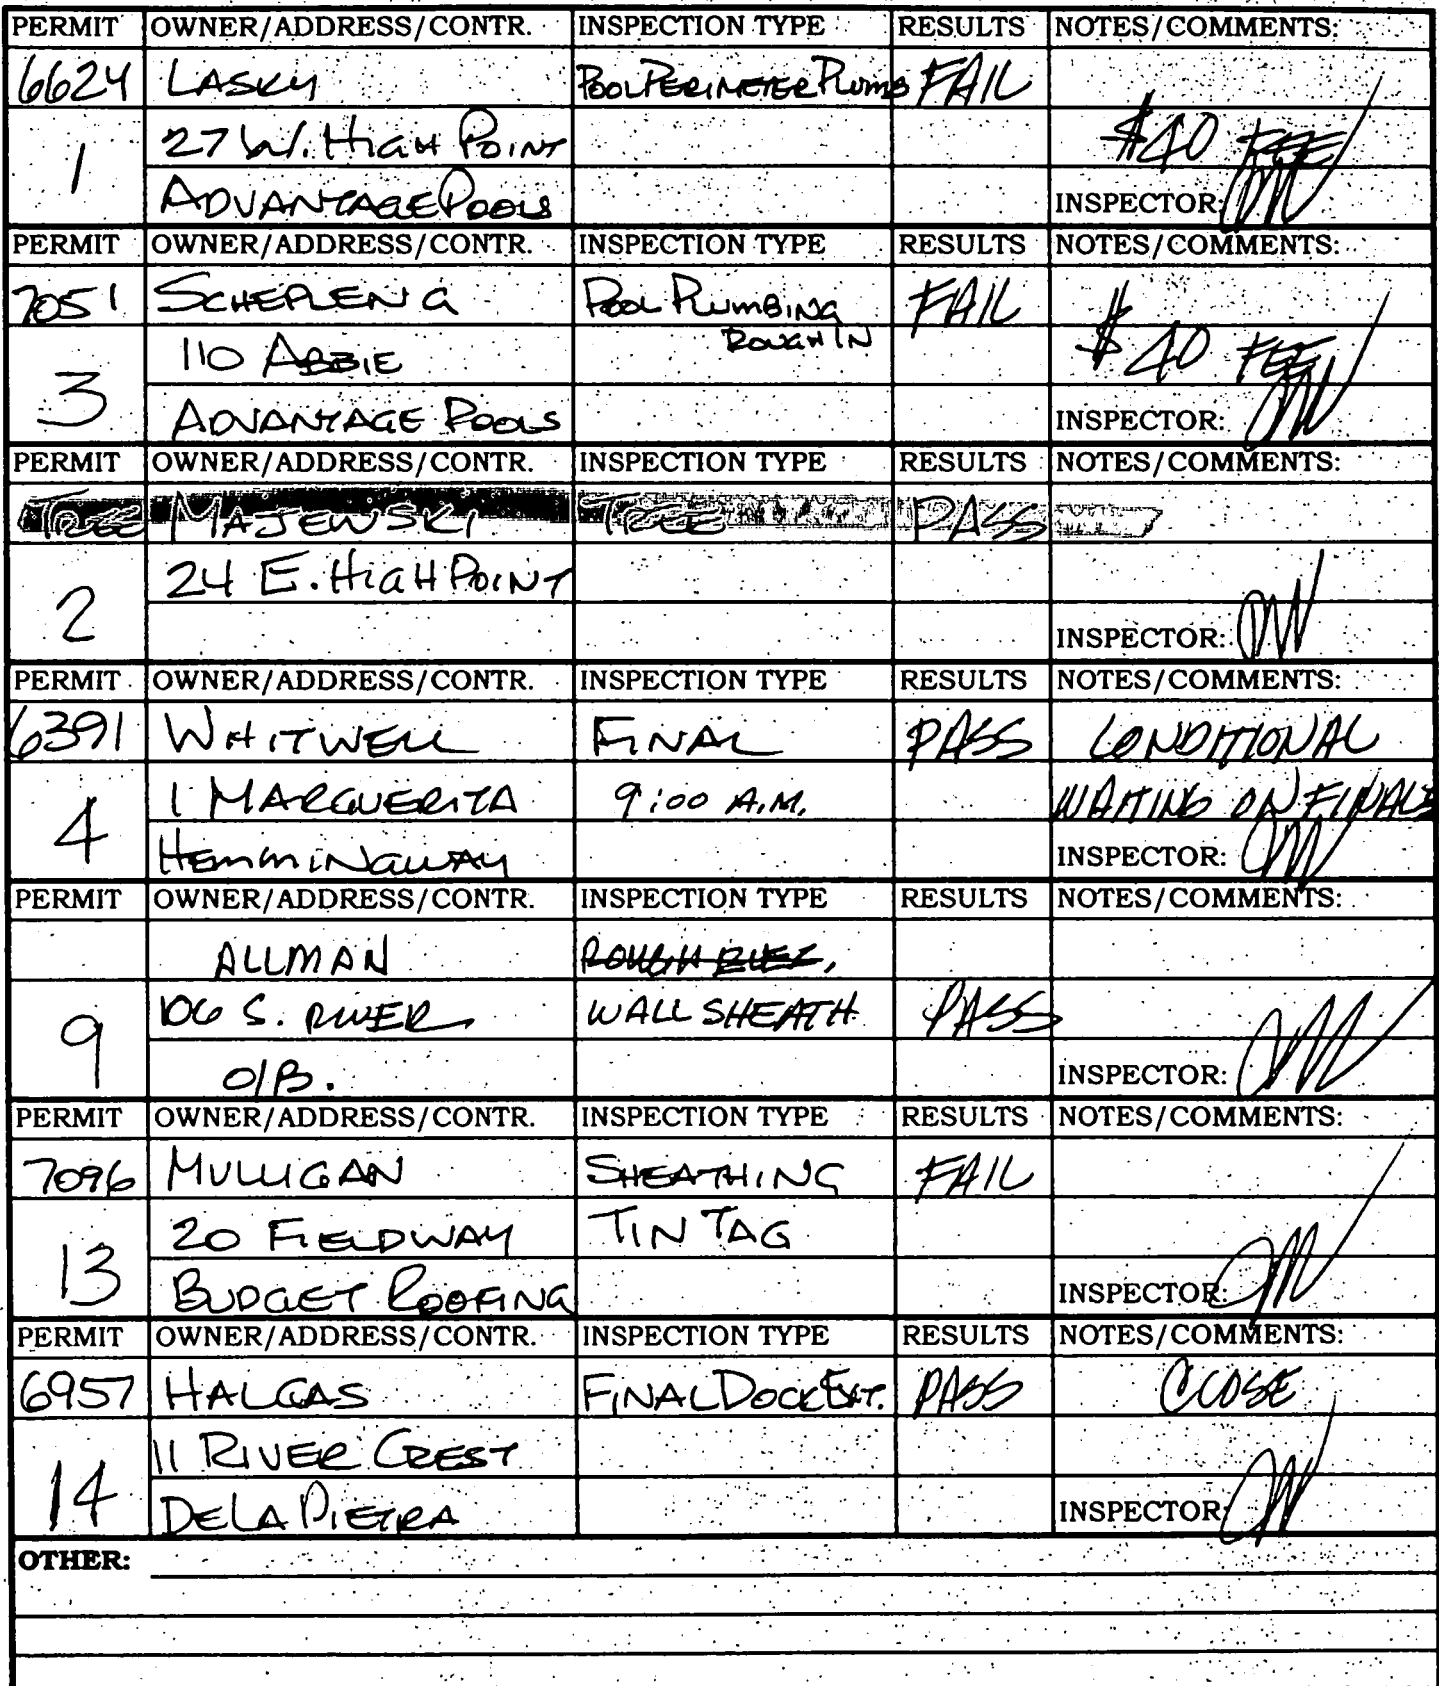 PERMIT OWNER/ADDRESS/CONTR. INSPECTION TYPE RESULTS NOTES/COMMENTS:
6624 LASKY POOL PERIMETER PLUMB FAIL
1 27 W. HIGH POINT $40 FEE
ADVANTAGE POOLS INSPECTOR:
PERMIT OWNER/ADDRESS/CONTR. INSPECTION TYPE RESULTS NOTES/COMMENTS:
7051 SCHEPLENG POOL PLUMBING FAIL
ROUGH IN
3 110 ABBIE $40 FEE
ADVANTAGE POOLS INSPECTOR:
PERMIT OWNER/ADDRESS/CONTR. INSPECTION TYPE RESULTS NOTES/COMMENTS:
TREE MAJEWSKI TREE PASS
2 24 E. HIGH POINT
INSPECTOR:
PERMIT OWNER/ADDRESS/CONTR. INSPECTION TYPE RESULTS NOTES/COMMENTS:
6391 WHITWELL FINAL PASS CONDITIONAL
4 1 MARGUERITA 9:00 A.M. WAITING ON FINALS
HEMMINGWAY INSPECTOR:
PERMIT OWNER/ADDRESS/CONTR. INSPECTION TYPE RESULTS NOTES/COMMENTS:
ALLMAN ROUGH ELEC,
9 106 S. RIVER WALL SHEATH PASS
O/B. INSPECTOR:
PERMIT OWNER/ADDRESS/CONTR. INSPECTION TYPE RESULTS NOTES/COMMENTS:
7096 MULLIGAN SHEATHING FAIL
13 20 FIELDWAY TIN TAG
BUDGET ROOFING INSPECTOR:
PERMIT OWNER/ADDRESS/CONTR. INSPECTION TYPE RESULTS NOTES/COMMENTS:
6957 HALGAS FINAL DOCK EXT. PASS CLOSE
14 11 RIVER CREST
DELA PIETRA INSPECTOR:
OTHER: